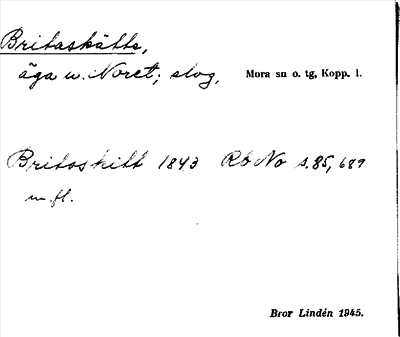 Britaskätte,
äga u. Noret; slog, Mora sn o. tg, Kopp. l.
Britaskitt 1843 Rb No s. 85, 689
m. fl.
Bror Lindén 1945.